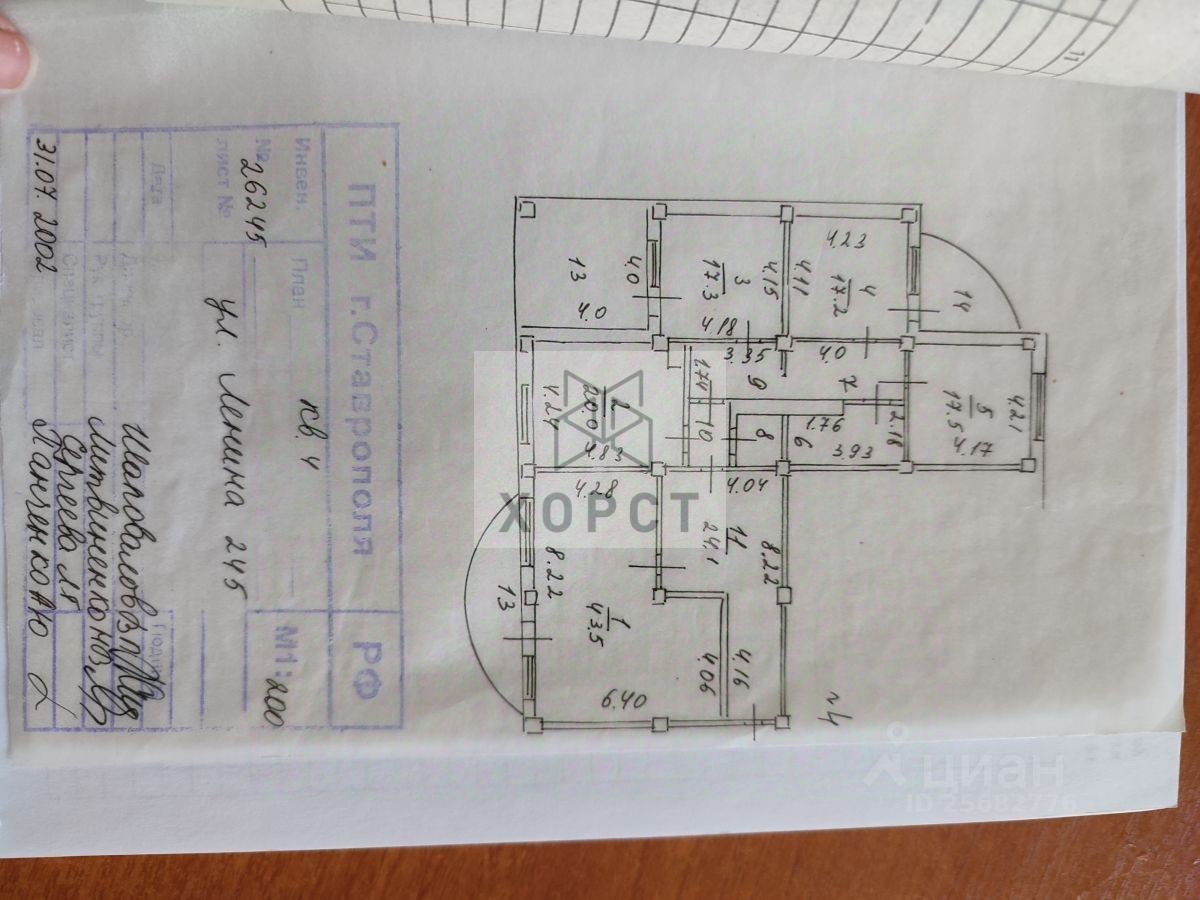 11
14
4.23
4
17.2
4.11
4.15
3
17.3
4.18
4.0
13
4.0
5
17.5
4.21
4.17
4.0
7
2.18
3.35
9
1.74
10
8
1.76
6
3.93
2
20.0
4.24
4.83
4.28
4.04
11
24.1
8.22
8.22
13
1
43.5
6.40
4.06
4.16
л4
ХОРСТ
ПТИ г.Ставрополя
РФ
Инвен.
№ 26245
План кв. 4
М1:200
лист №
ул. Ленина 245
Дата
Шаповалов
Литвиненко
Сергеева
31.07.2002
Панченко
циан
ID 25682776